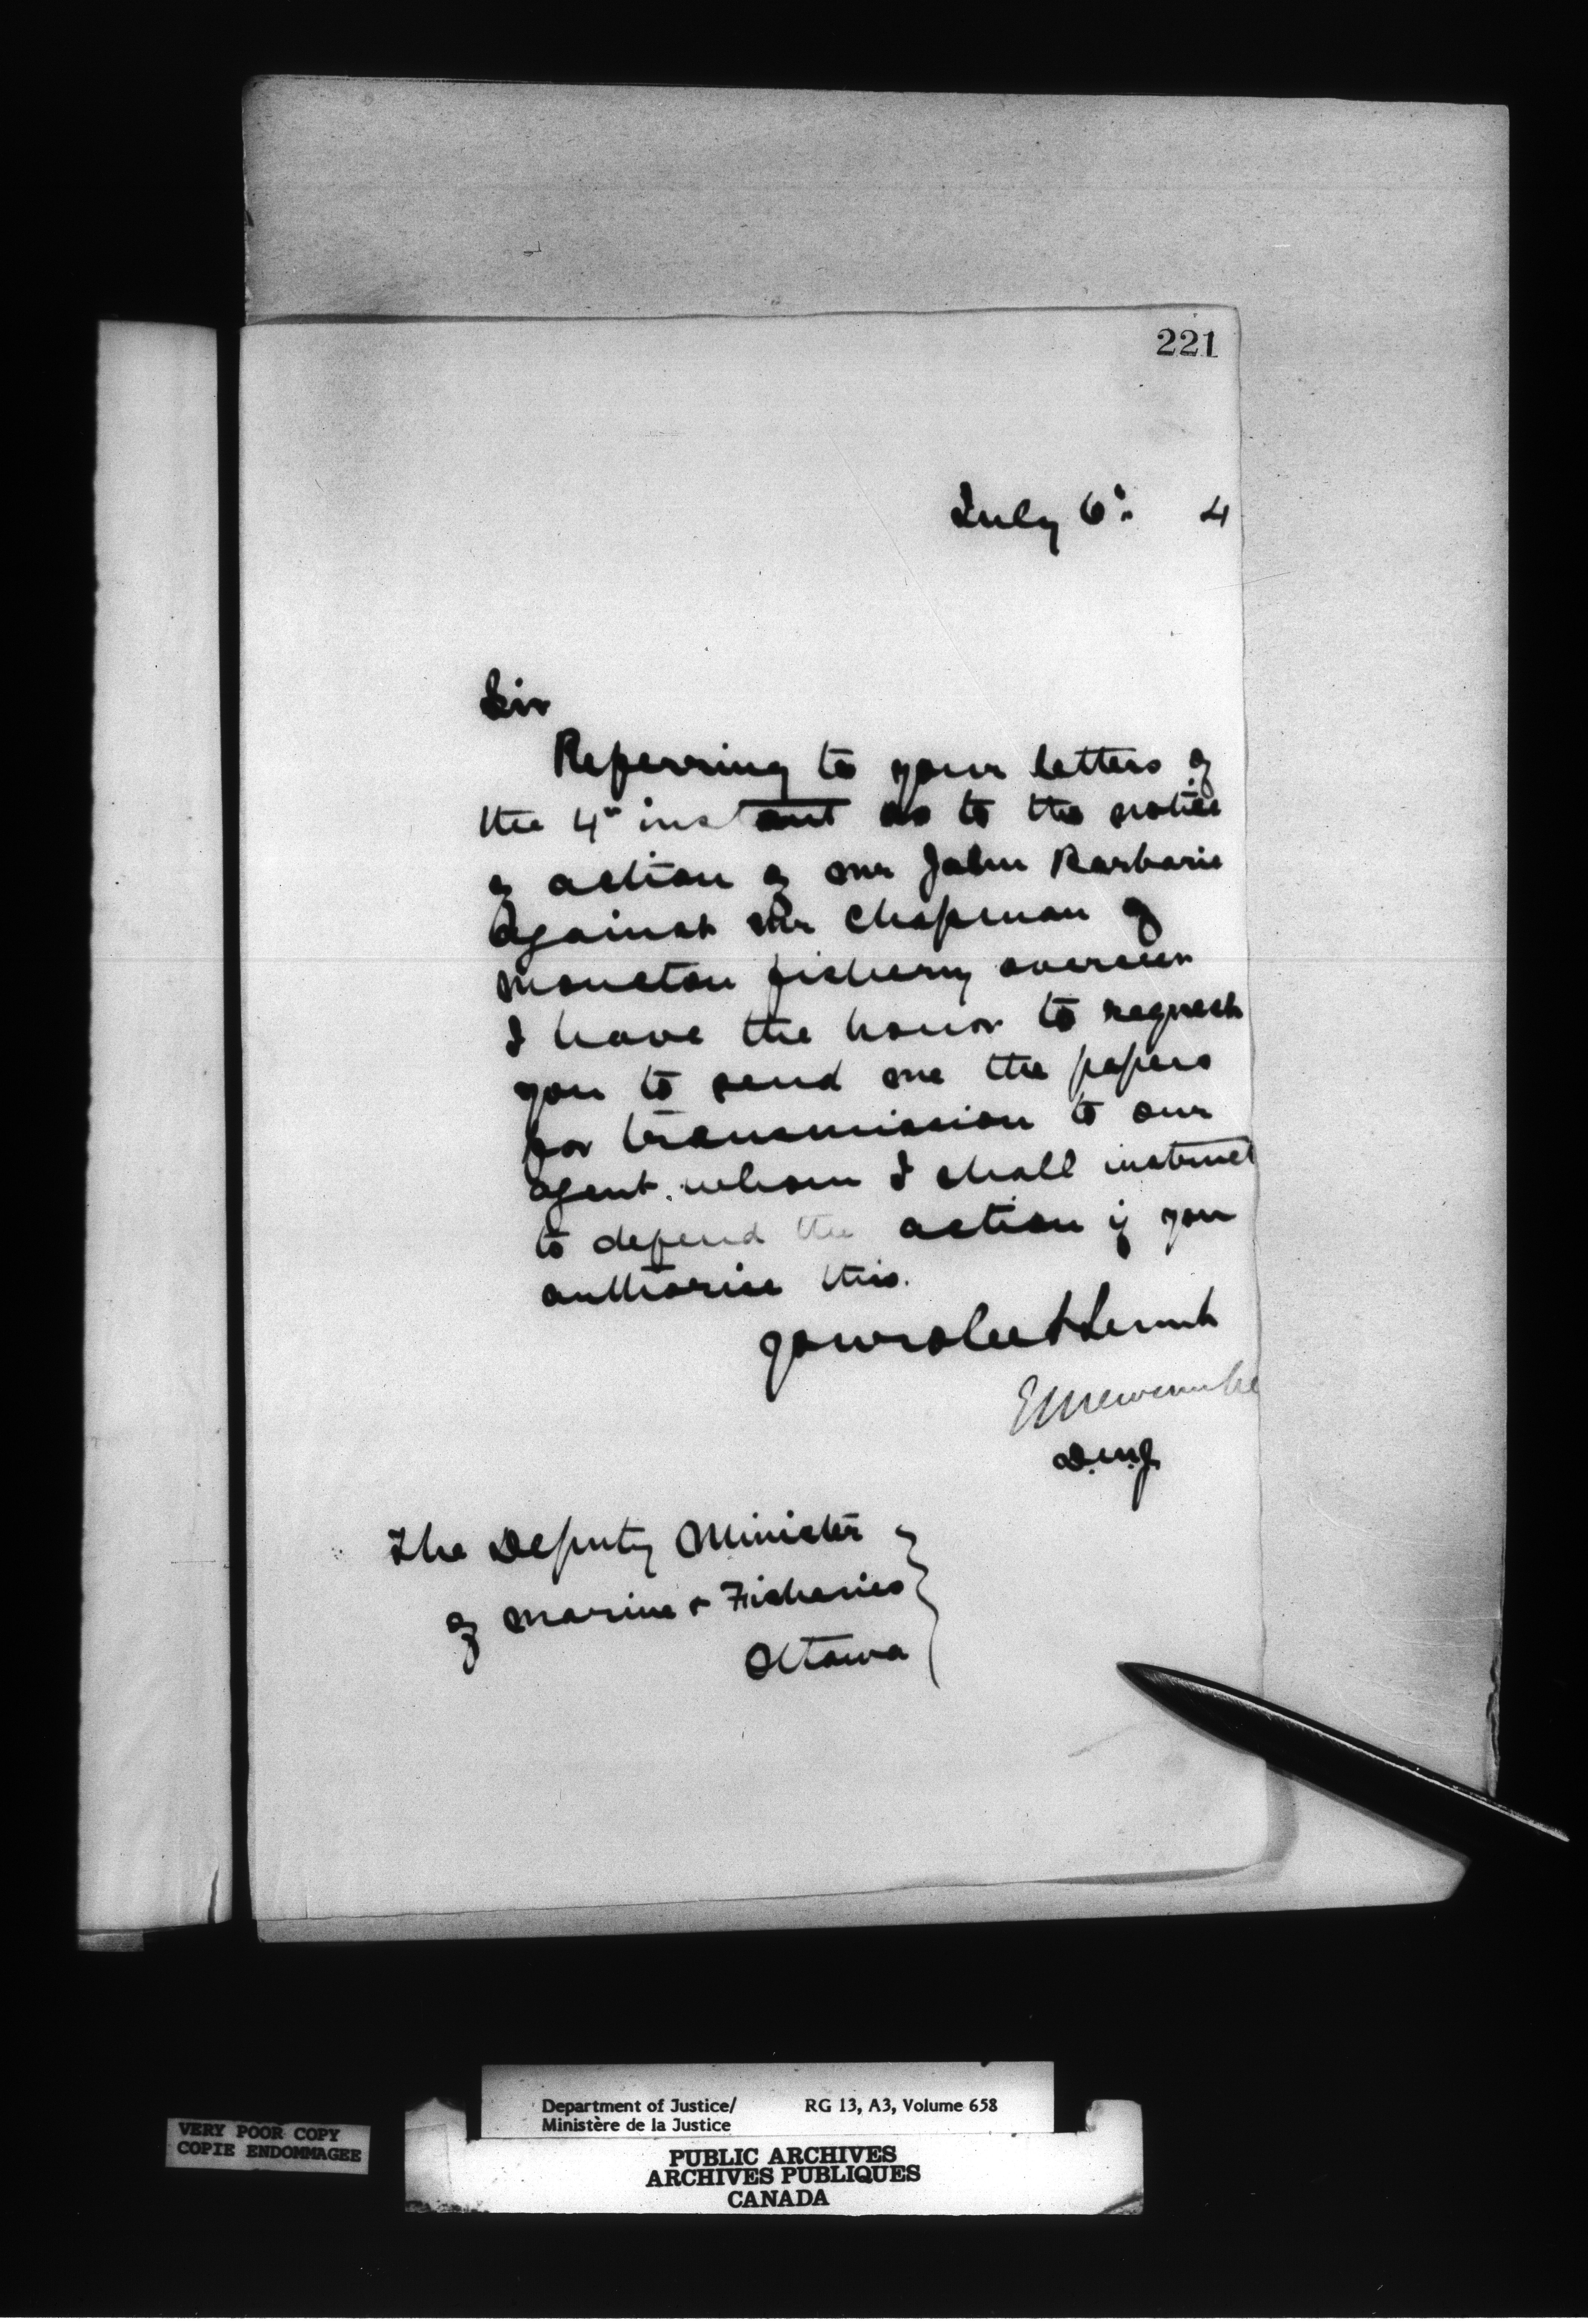 221
July 6th 4
Sir
Referring to your letters of
the 4th instant as to the notice
of action of Mr John Barbarie
against Mr Chapman of
Moncton fishery overseer
I have the honor to request
you to send me the papers
for transmission to our
agent. whom I shall instruct
to defend the action if you
authorise this.
Your obedt Servt
E L Newcombe
D.M.J.
The Deputy Minister
of Marine & Fisheries
Ottawa
VERY POOR COPY
COPIE ENDOMMAGEE
Department of Justice/ RG 13, A3, Volume 658
Ministère de la Justice
PUBLIC ARCHIVES
ARCHIVES PUBLIQUES
CANADA